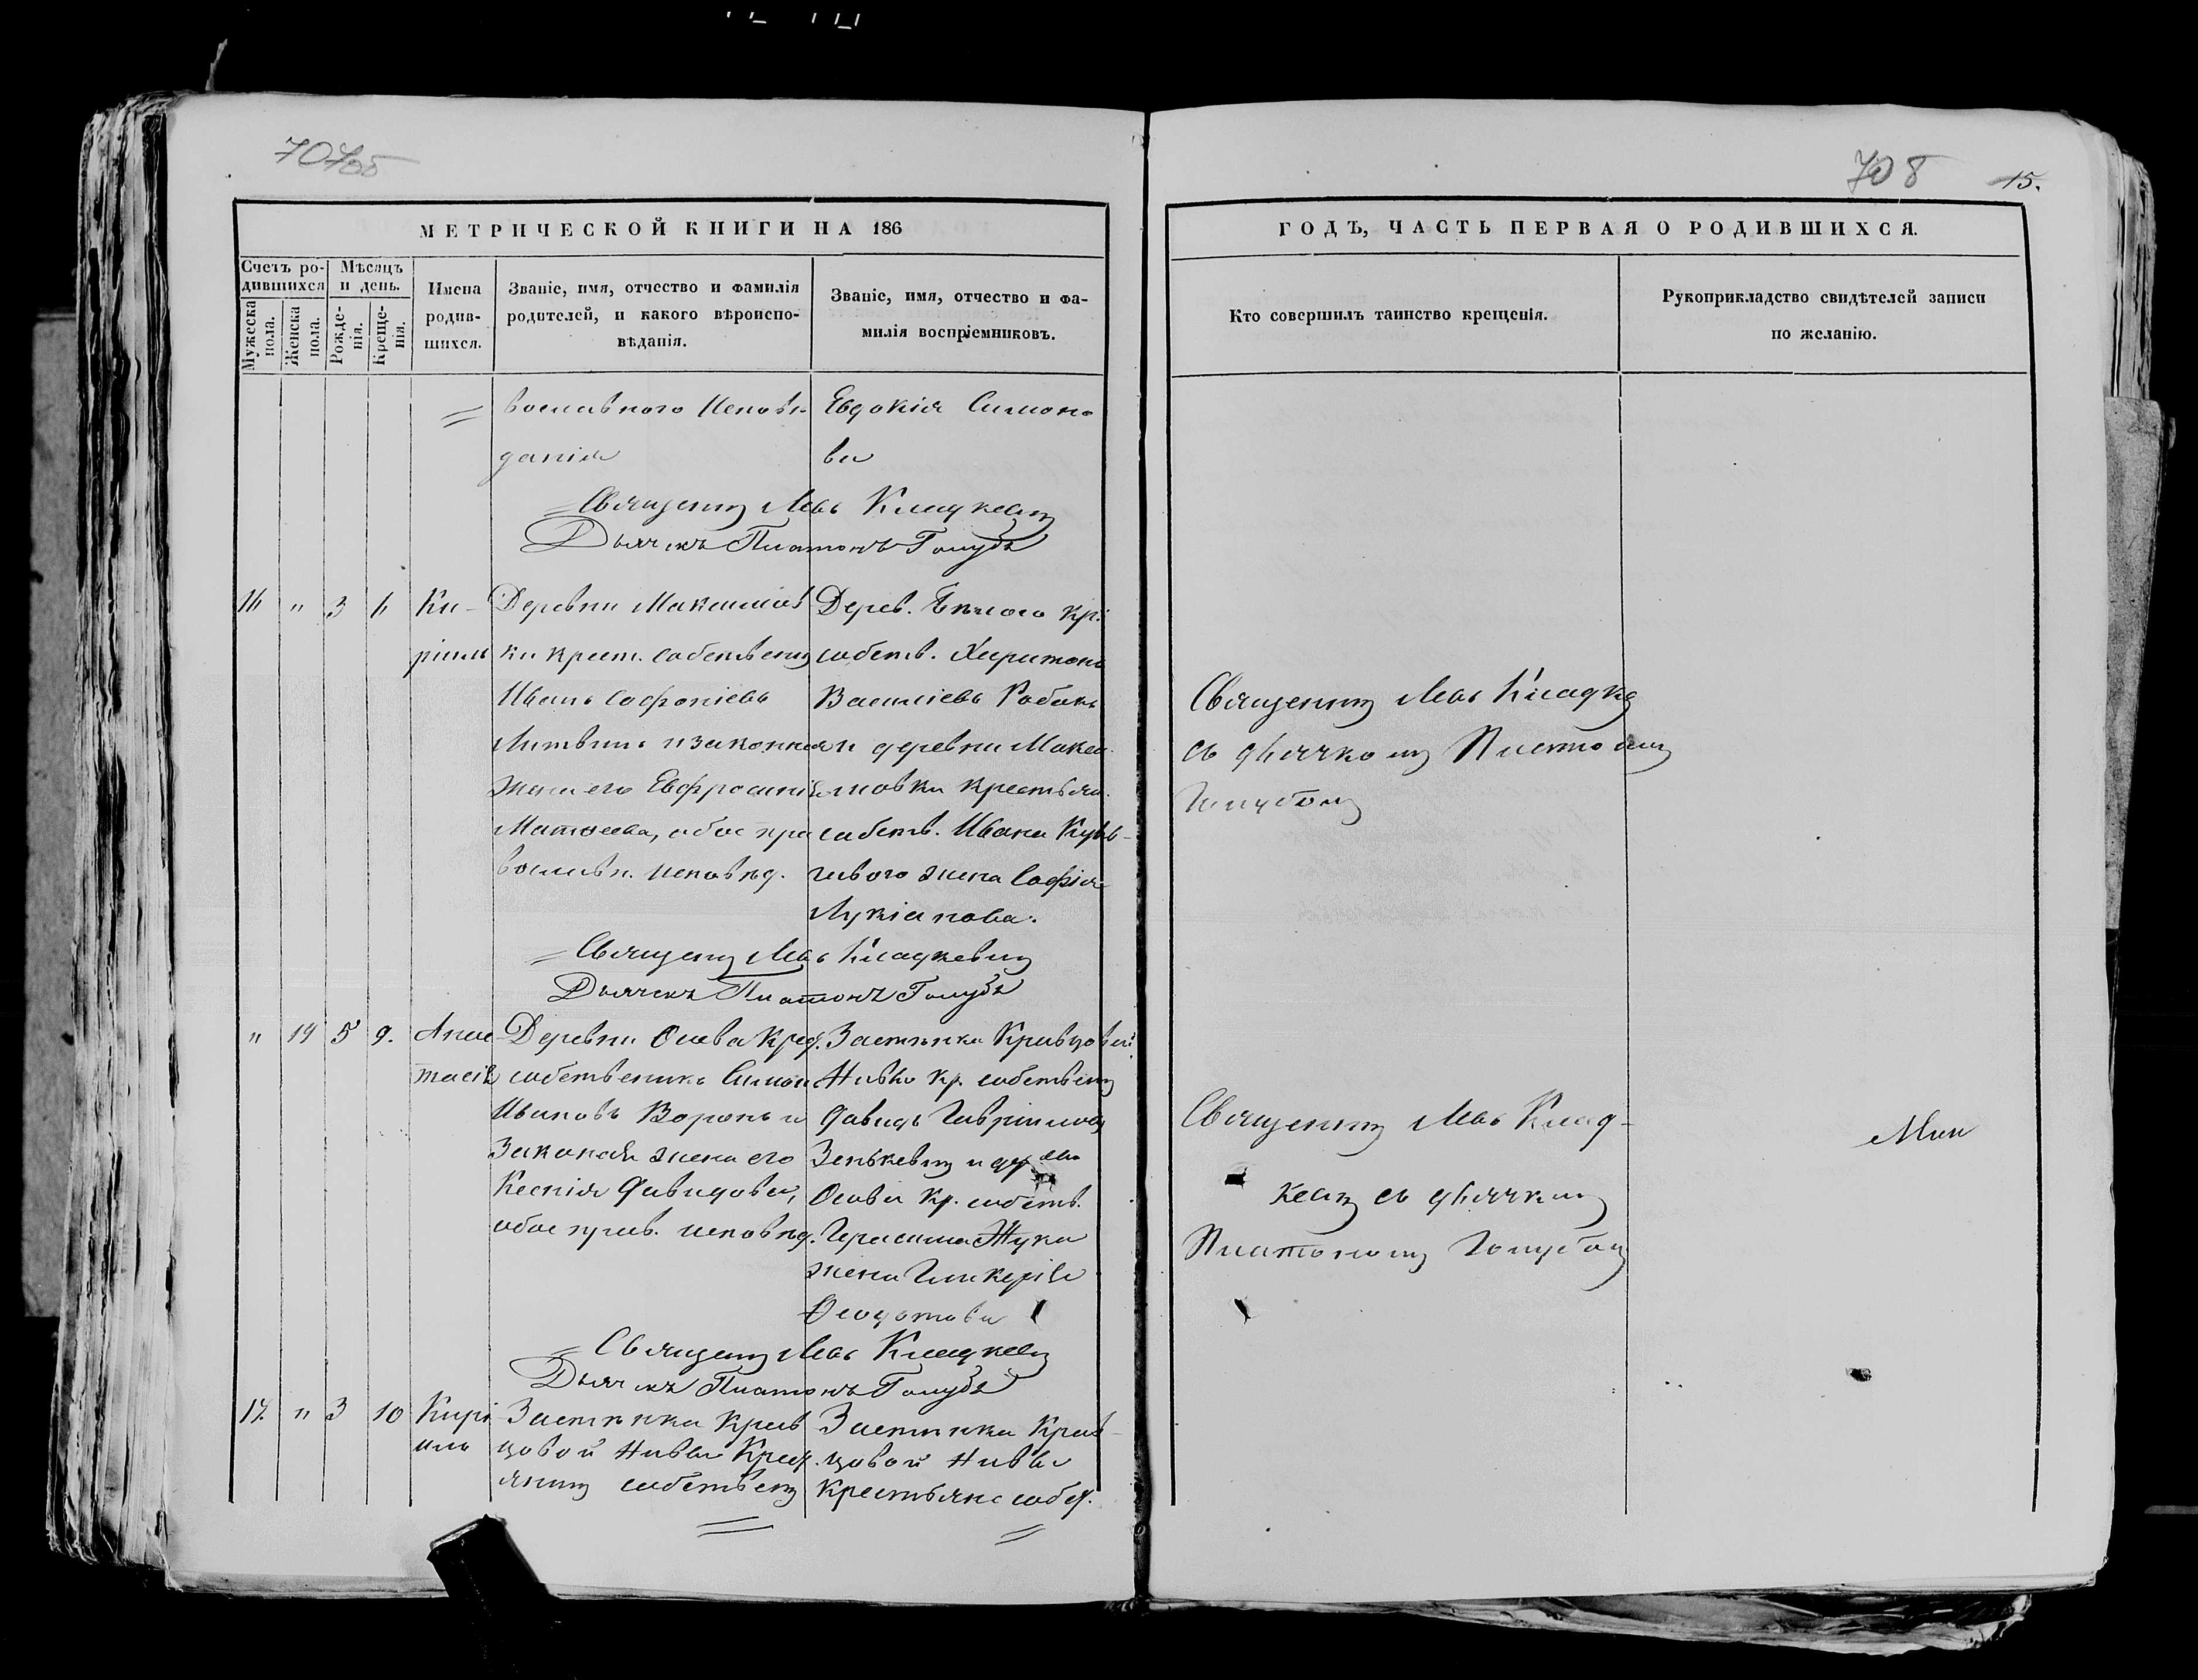 707об
708
15.
МЕТРИЧЕСКОЙ КНИГИ НА 186
ГОДЪ, ЧАСТЬ ПЕРВАЯ О РОДИВШИХСЯ.
Счетъ ро-
дившихся
Мужеска
пола.
Женска
пола.
Мѣсяцъ
и день.
Рожде-
нія.
Креще-
нія.
Имена
родив-
шихся.
Званіе, имя, отчество и фамилія
родителей, и какого вѣроиспо-
вѣданія.
Званіе, имя, отчество и фа-
милія воспріемниковъ.
Кто совершилъ таинство крещенія.
Рукоприкладство свидѣтелей записи
по желанію.
вославного исповѣ-
данія
Евдокія Симоно
ва
Священникъ Левъ Кладкевич
Дьячекъ Платонъ Голубъ
16 " 3 6
Ки-
риллъ
Деревни Максимов
ки крест. собственникъ
Иванъ Софоніевъ
Литвинъ и законная
жена его Евфросинія
Матфеева, обое пра
вославн. исповѣд.
Дерев. кр.
собств. Харитонъ
Василіевъ Рабокъ
и деревни Макси
мовки крестьян.
собств. Ивана
жена Софія
Лукіанова.
Священникъ Левъ Кладке
съ дьячкомъ Платономъ
Голубомъ
Священ Левъ Кладкевич
Дьячекъ Платонъ Голубъ
" 19 5 9.
Анас
тасія
Деревни Осова Крест.
собственникъ Симонъ
Ивановъ Воронъ и
Законная жена его
Ксенія Давидова,
обое прав. исповѣд.
Застѣнка Кривцовой
Нивы кр. собствен
Давидъ Гавріиловъ
Зенькевич и дер
Осова кр. собств.
Герасима Жука
жена Гликерія
Феодотова
Священникъ Левъ Клад-
кевич съ дьячкомъ
Платономъ Голубомъ
Священ Левъ Кладкевич
Дьячекъ Платонъ Голубъ
17. " 3 10
Кирі
илъ
Застѣнка Крив
цовой Нивы Крест.
янинъ собствен
Застѣнка Крив-
цовой Нивы
Крестьяне собст.